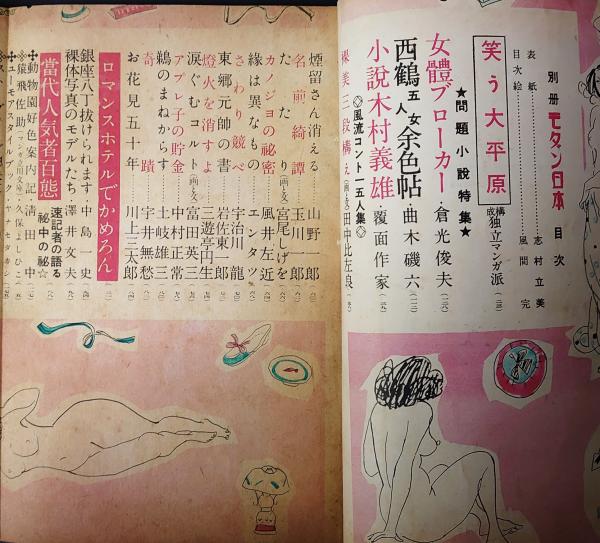 別册 モダン日本 目次
表紙 志村立美
目次絵 風間完
笑う大平原 構成 独立マンガ派
★問題小説特集★
女體ブローカー 倉光俊夫
西鶴五人女余色帖 曲木磯六
小説木村義雄 覆面作家
◎風流コント一五人集◎
裸美三段構え(画と文) 田中比左良
煙留さん消える 山野一郎
名前綺譚 玉川一郎
たたり(画と文) 宮尾しげを
カノジョの秘密 風井左近
緣は異なもの エンタツ
さわり競べ 宇治川龍
東郷元帥の書 岩佐東一郎
燈火を消すよ 三遊亭円生
涙ぐむコルト(画と文) 富田英三
アプレ子の貯金 中村正常
鵜のまねからす 土岐雄三
奇蹟 宇井無愁
お花見五十年 川上三太郎
ロマンスホテルでかめろん
銀座八丁拔けられます 中島一史
裸体写真のモデルたち 澤井文夫
當代人気者百態 速記者の語る 秘中の秘☆
動物園好色案内記 清田中
猿飛佐助(マンガ立川文庫) 久保よしひこ
ユーモアスタイルブック